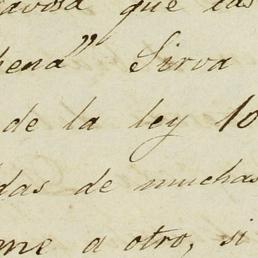 que las
pena" Sirva
de la ley 10
das de muchas
me a otro, si